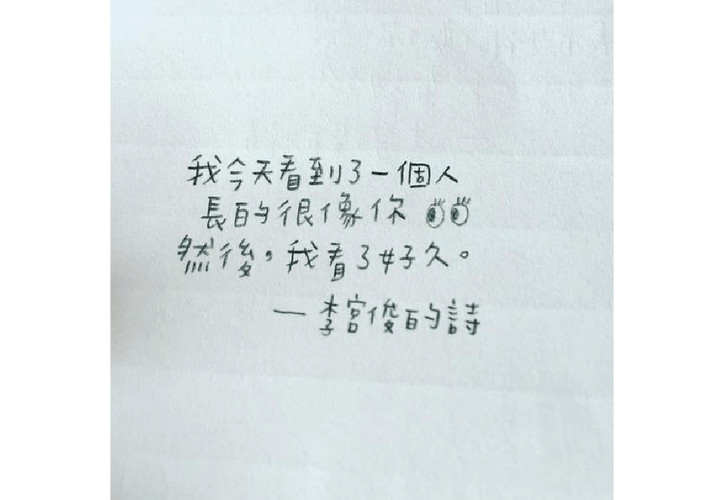 我今天看到了一個人
長的很像你 👀
然後，我看了好久。
— 李宮俊的詩